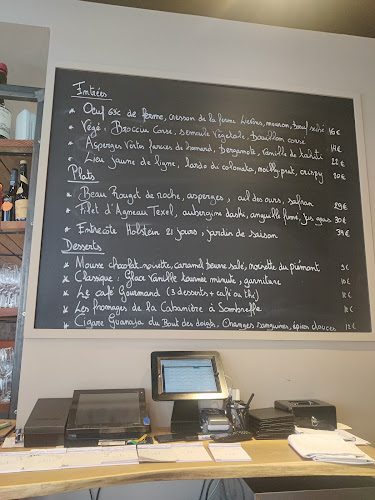 Entrées
* Oeuf 65c de ferme, cresson de la ferme Liévins, mouron, boeuf séché 16€
* Végé. Brocciu Corse, semoule végétale, bouillon corsé 14€
* Asperges Vertes farcies de homard, bergamote, vanille de tahiti 22€
* Lieu jaune de ligne, lardo di colonata, molly, prat, crispy 20€
Plats
* Beau Rouget de roche, asperges, ail des ours, safran 29€
* Filet d'Agneau Texel, aubergine dashi, anguille fumé, jus agas 30€
* Entrecôte Holstein 21 jours, jardin de saison 39€
Desserts
* Mousse chocolat noisette, caramel beurre salé, noisette du piémont 9€
* Classique Glace Vanille tournée minute, garniture 10€
* Le café Gourmand (3 desserts + café ou thé) 12€
* Les fromages de la Cabanière à Sombreffe 12€
* Cigare Guanaja du Bout des doigts, Oranges sanguines, épices douces 12€